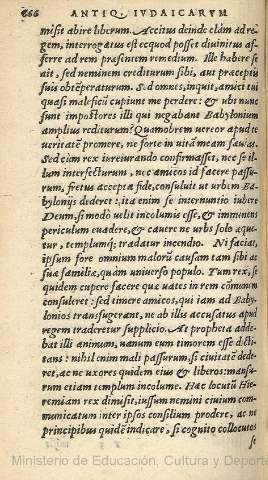 666 ANTIQ. IVDAICARVM
misit abire liberum. Accitus deinde clàm ad re-
gem, interrogatus est ecquod posset diuinitus af-
ferre ad rem præsentem remedium. Ille habere se
ait, sed neminem crediturum sibi, aut præceptis
suis obtẽperaturum. Sed omnes, inquit, amici tui
quasi maleficũ cupiunt me perdere: & vbi nunc
sunt impostores illi qui negabant Babylonium
amplius rediturum? Quamobrem vereor apud te
veritatẽ promere, ne forte in vitã meam sæuias.
Sed cùm rex iureiurando confirmasset, nec se il-
lum interfecturum, nec amicos id facere passu-
rum, fretus accepta fide, consuluit ut vrbem Ba-
bylonijs dederet: ita enim se internuntio iubere
Deum, si modò velit incolumis esse, & imminens
periculum euadere, & cauere ne vrbs solo æque-
tur, templumq; tradatur incendio. Ni faciat,
ipsum fore omnium malorũ causam tam sibi ac
suæ familiæ, quàm vniuerso populo. Tum rex, se
quidem cupere facere quæ vates in rem cõmunẽ
consuleret: sed timere amicos, qui iam ad Baby-
lonios transfugerant, ne ab illis accusatus apud
regem traderetur supplicio. At propheta adde-
bat illi animum, vanum eum timorem esse dicti-
tans: nihil enim mali passurum, si ciuitatẽ dede-
ret, ac ne vxores quidem eius & liberos: mansu-
rum etiam templum incolume. Hæc locutũ Hie-
remiam rex dimisit, iussum nemini ciuium com-
municatum inter ipsos consilium prodere, ac ne
principibus quidẽ indicare, si cognito collocutos
se
Ministerio de Educación, Cultura y Deporte